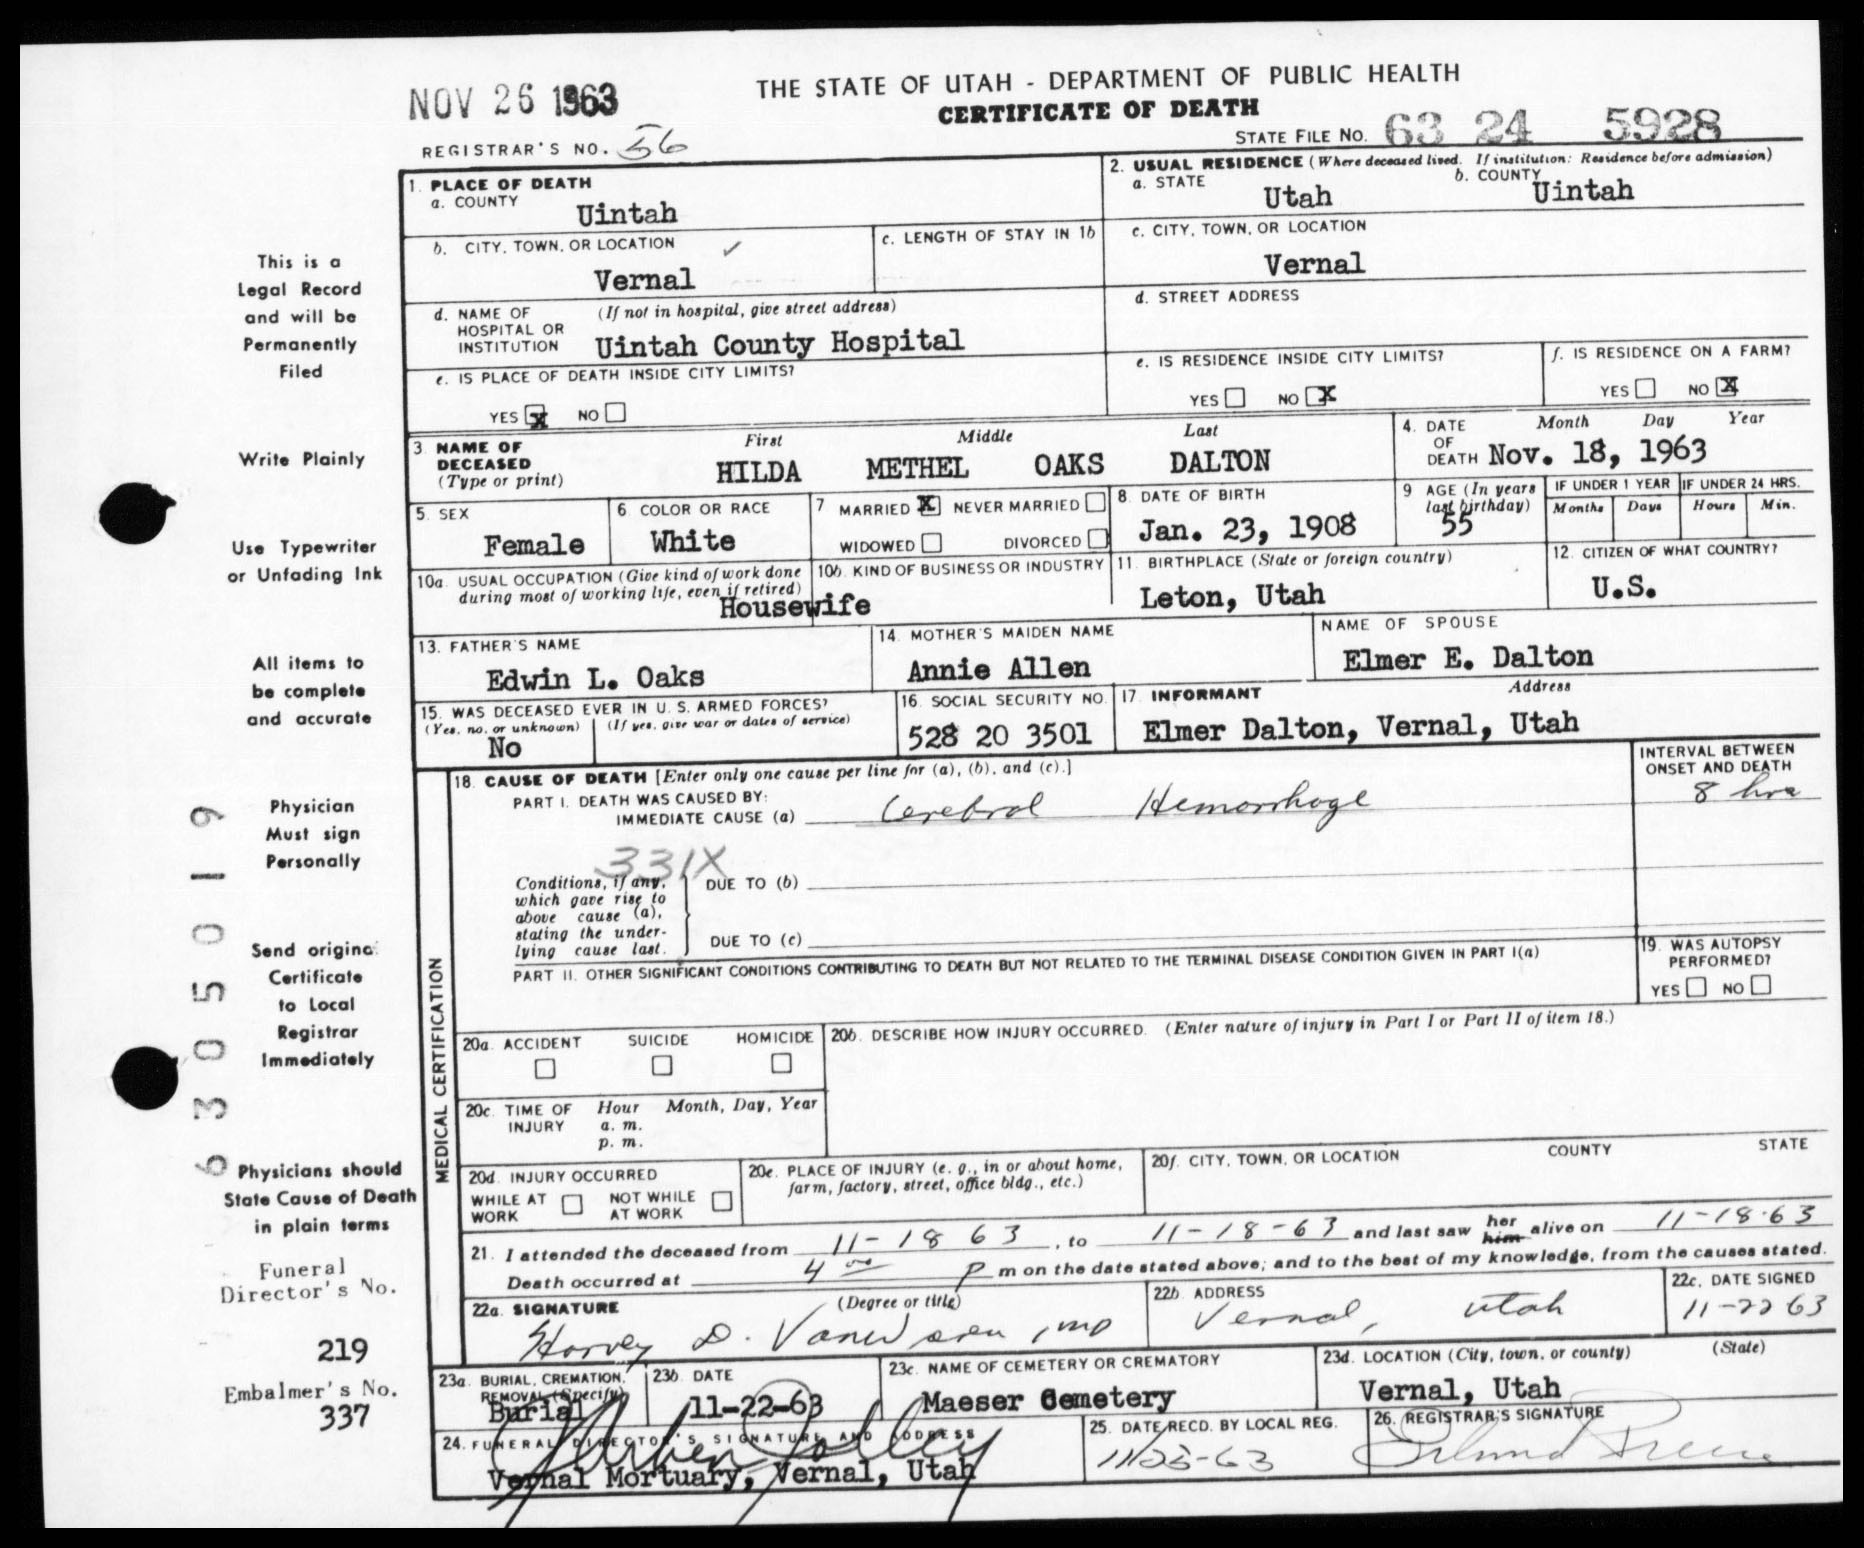 NOV 26 1963
THE STATE OF UTAH - DEPARTMENT OF PUBLIC HEALTH
CERTIFICATE OF DEATH
REGISTRAR'S NO. 56
STATE FILE NO. 63 24 5928
1. PLACE OF DEATH
a. COUNTY
Uintah
2. USUAL RESIDENCE (Where deceased lived. If institution: Residence before admission)
a. STATE
Utah
b. COUNTY
Uintah
b. CITY, TOWN, OR LOCATION
Vernal
c. LENGTH OF STAY IN 1b
c. CITY, TOWN, OR LOCATION
Vernal
d. NAME OF HOSPITAL OR INSTITUTION
(If not in hospital, give street address)
Uintah County Hospital
d. STREET ADDRESS
e. IS PLACE OF DEATH INSIDE CITY LIMITS?
YES X NO
e. IS RESIDENCE INSIDE CITY LIMITS?
YES NO X
f. IS RESIDENCE ON A FARM?
YES NO X
3. NAME OF DECEASED (Type or print)
First Middle Last
HILDA METHEL OAKS DALTON
4. DATE OF DEATH
Month Day Year
Nov. 18, 1963
5. SEX
Female
6. COLOR OR RACE
White
7. MARRIED X NEVER MARRIED
WIDOWED DIVORCED
8. DATE OF BIRTH
Jan. 23, 1908
9 AGE (In years last birthday)
55
IF UNDER 1 YEAR
Months Days
IF UNDER 24 HRS.
Hours Min.
10a. USUAL OCCUPATION (Give kind of work done during most of working life, even if retired)
Housewife
10b. KIND OF BUSINESS OR INDUSTRY
11. BIRTHPLACE (State or foreign country)
Leton, Utah
12. CITIZEN OF WHAT COUNTRY?
U.S.
13. FATHER'S NAME
Edwin L. Oaks
14. MOTHER'S MAIDEN NAME
Annie Allen
NAME OF SPOUSE
Elmer E. Dalton
15. WAS DECEASED EVER IN U. S. ARMED FORCES?
(Yes, no, or unknown) (If yes, give war or dates of service)
No
16. SOCIAL SECURITY NO.
528 20 3501
17. INFORMANT Address
Elmer Dalton, Vernal, Utah
MEDICAL CERTIFICATION
18. CAUSE OF DEATH [Enter only one cause per line for (a), (b), and (c).]
INTERVAL BETWEEN ONSET AND DEATH
PART I. DEATH WAS CAUSED BY:
IMMEDIATE CAUSE (a) Cerebral Hemorrhage
8 hrs
331X
Conditions, if any, which gave rise to above cause (a), stating the underlying cause last.
DUE TO (b)
DUE TO (c)
PART II. OTHER SIGNIFICANT CONDITIONS CONTRIBUTING TO DEATH BUT NOT RELATED TO THE TERMINAL DISEASE CONDITION GIVEN IN PART I(a)
19. WAS AUTOPSY PERFORMED?
YES NO
20a. ACCIDENT SUICIDE HOMICIDE
20b. DESCRIBE HOW INJURY OCCURRED. (Enter nature of injury in Part I or Part II of item 18.)
20c. TIME OF INJURY
Hour Month, Day, Year
a. m.
p. m.
20d. INJURY OCCURRED
WHILE AT WORK NOT WHILE AT WORK
20e. PLACE OF INJURY (e. g., in or about home, farm, factory, street, office bldg., etc.)
20f. CITY, TOWN, OR LOCATION COUNTY STATE
21. I attended the deceased from 11-18 63, to 11-18-63 and last saw her him alive on 11-18-63
Death occurred at 4 00 P m on the date stated above; and to the best of my knowledge, from the causes stated.
22a. SIGNATURE (Degree or title)
Harvey D. MD
22b. ADDRESS
Vernal, Utah
22c. DATE SIGNED
11-22 63
23a. BURIAL, CREMATION, REMOVAL (Specify)
Burial
23b. DATE
11-22-63
23c. NAME OF CEMETERY OR CREMATORY
Maeser Cemetery
23d. LOCATION (City, town, or county) (State)
Vernal, Utah
24. FUNERAL DIRECTOR'S SIGNATURE AND ADDRESS
Vernal Mortuary, Vernal, Utah
25. DATE RECD. BY LOCAL REG.
11/25-63
26. REGISTRAR'S SIGNATURE
This is a
Legal Record
and will be
Permanently
Filed
Write Plainly
Use Typewriter
or Unfading Ink
All items to
be complete
and accurate
Physician
Must sign
Personally
Send original
Certificate
to Local
Registrar
Immediately
Physicians should
State Cause of Death
in plain terms
Funeral
Director's No.
219
Embalmer's No.
337
6305019